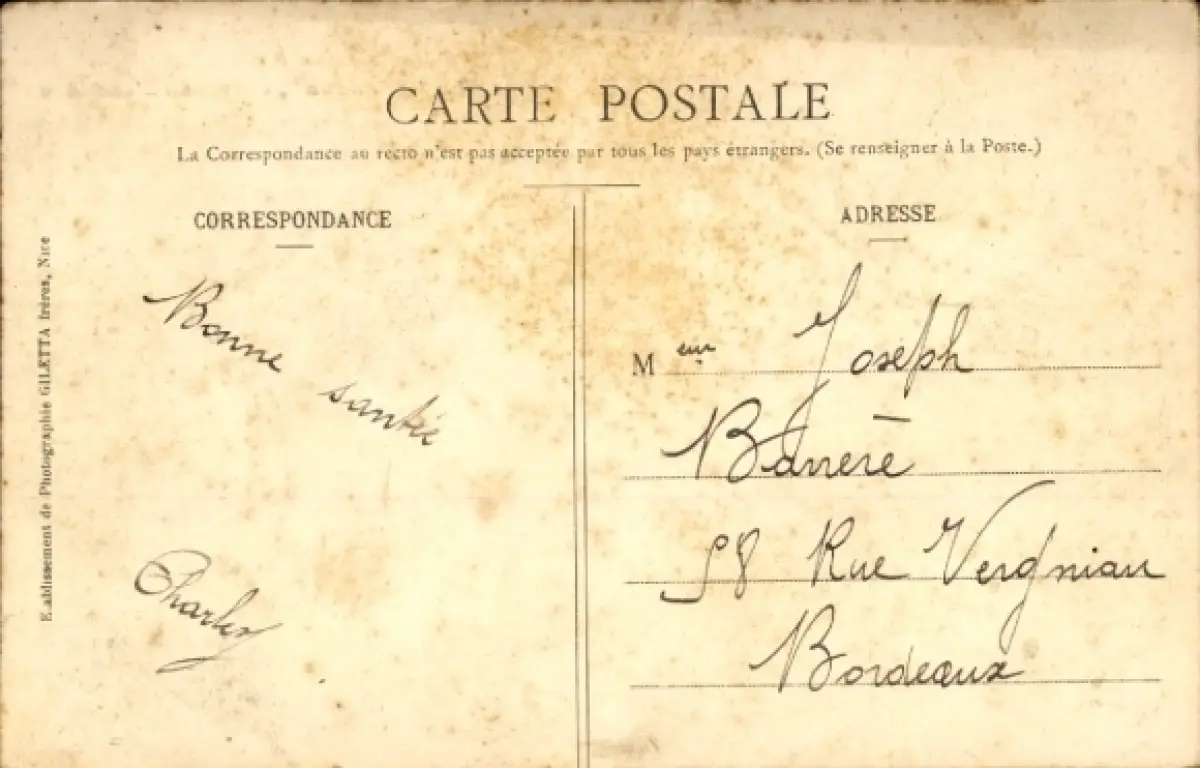 CARTE POSTALE
La Correspondance au recto n'est pas acceptée par tous les pays étrangers. (Se renseigner à la Poste.)
CORRESPONDANCE
Bonne
santée
Charles
Etablissement de Photographie GILETTA frères, Nice
ADRESSE
Meur Joseph
Barrère
58 Rue Vergniau
Bordeaux